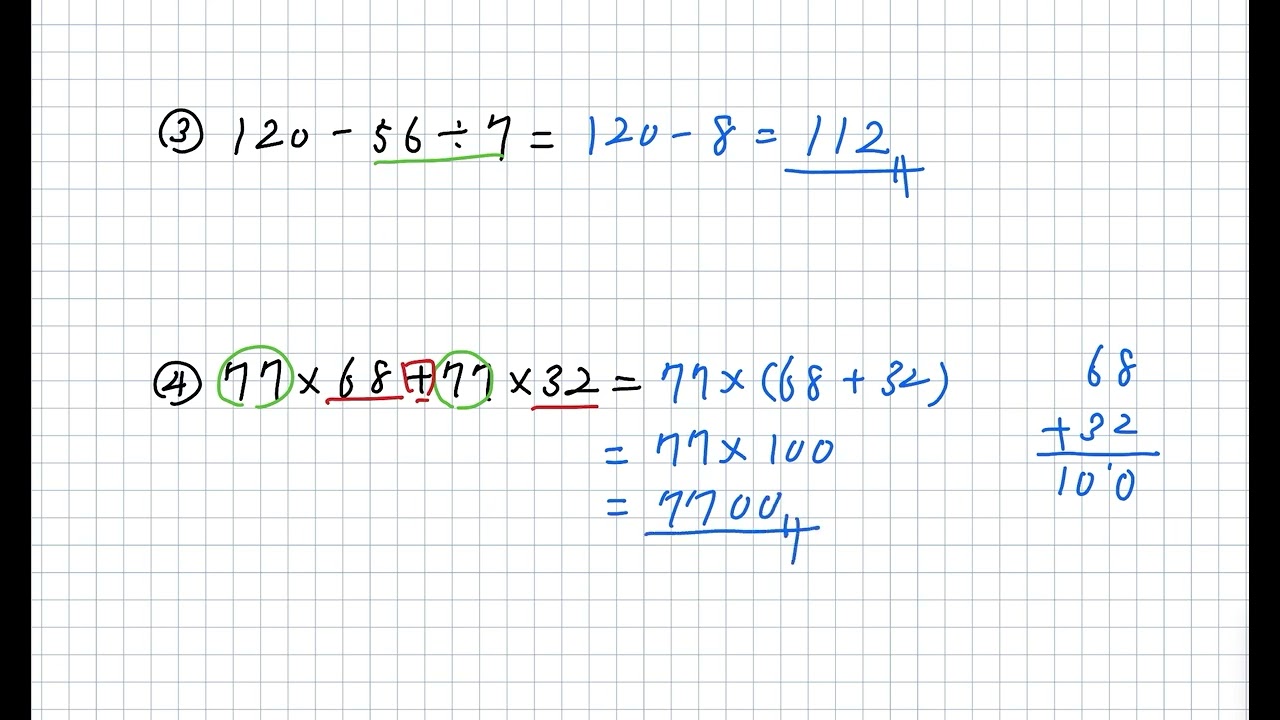 ③ 120 - 56 ÷ 7 = 120 - 8 = 112
④ 77 × 68 + 77 × 32 = 77 × (68 + 32)
= 77 × 100
= 7700
68
+ 32
100